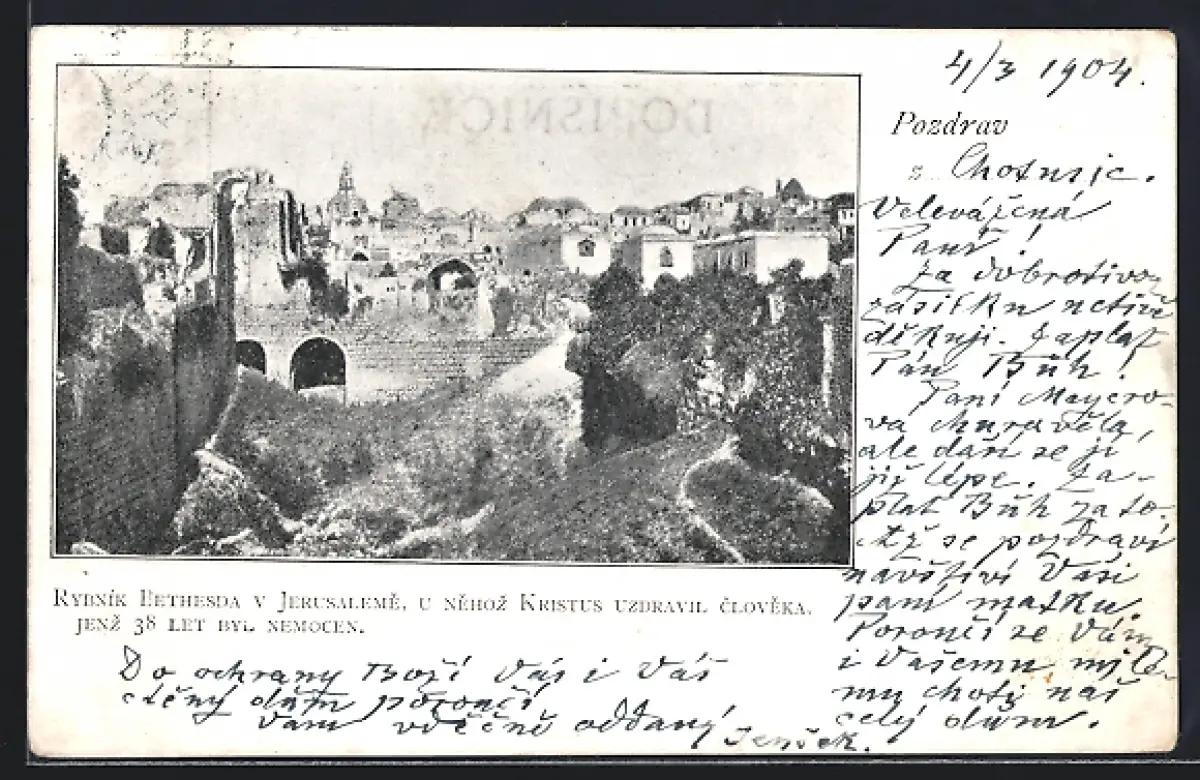 4/3 1904.
Pozdrav
z Chotusic.
Velevážená
Paní!
Za dobrotivou
zásilku
děkuji. Zaplať
Pán Bůh!
Paní Mayero-
va churavěla,
ale daří se jí
již lépe. Za-
plať Bůh za to.
se pozdraví
navštíví Vaši
paní matku.
Poroučí se Vám
i Vašemu milé-
mu choti náš
celý dům.
DOPISNICE
RYBNÍK BETHESDA V JERUSALEMĚ, U NĚHOŽ KRISTUS UZDRAVIL ČLOVĚKA,
JENŽ 38 LET BYL NEMOCEN.
Do ochrany Boží Vás i Váš
ctěný dům poroučí
Vám vděčně oddaný